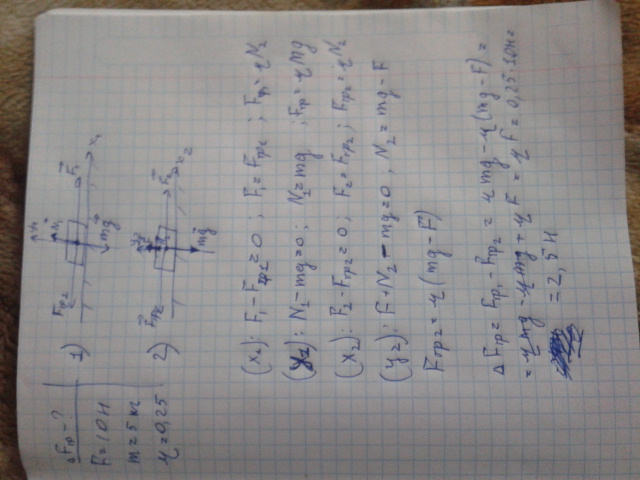 ΔFтр - ?
F = 10 Н
m = 5 кг
μ = 0,25
1)
Fтр₁
N₁
F₁
x₁
mg
2)
Fтр₂
F₂
x₂
mg
(x₁): F₁ - Fтр₁ = 0 ; F₁ = Fтр₁ ; Fтр₁ = μN₁
(y₁): N₁ - mg = 0 ; N₁ = mg ; Fтр = μmg
(x₂): F₂ - Fтр₂ = 0 ; F₂ = Fтр₂ ; Fтр₂ = μN₂
(y₂): F + N₂ - mg = 0 , N₂ = mg - F
Fтр₂ = μ(mg - F)
ΔFтр = Fтр₁ - Fтр₂ = μmg - μ(mg - F) =
= μmg - μmg + μF = μF = 0,25·10Н =
= 2,5 Н